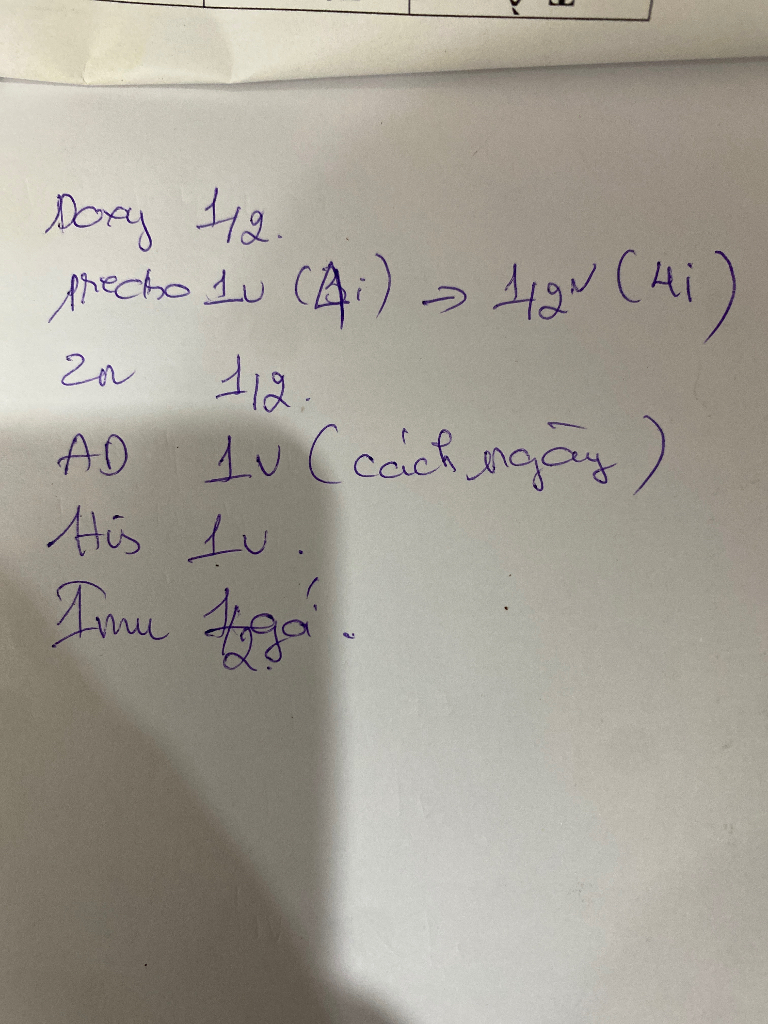 Doxy 1/2.
predno 1v (4i) → 1/2v (4i)
Zn 1/2.
AD 1v (cách ngày)
His 1v.
Imu 1/2 gói.